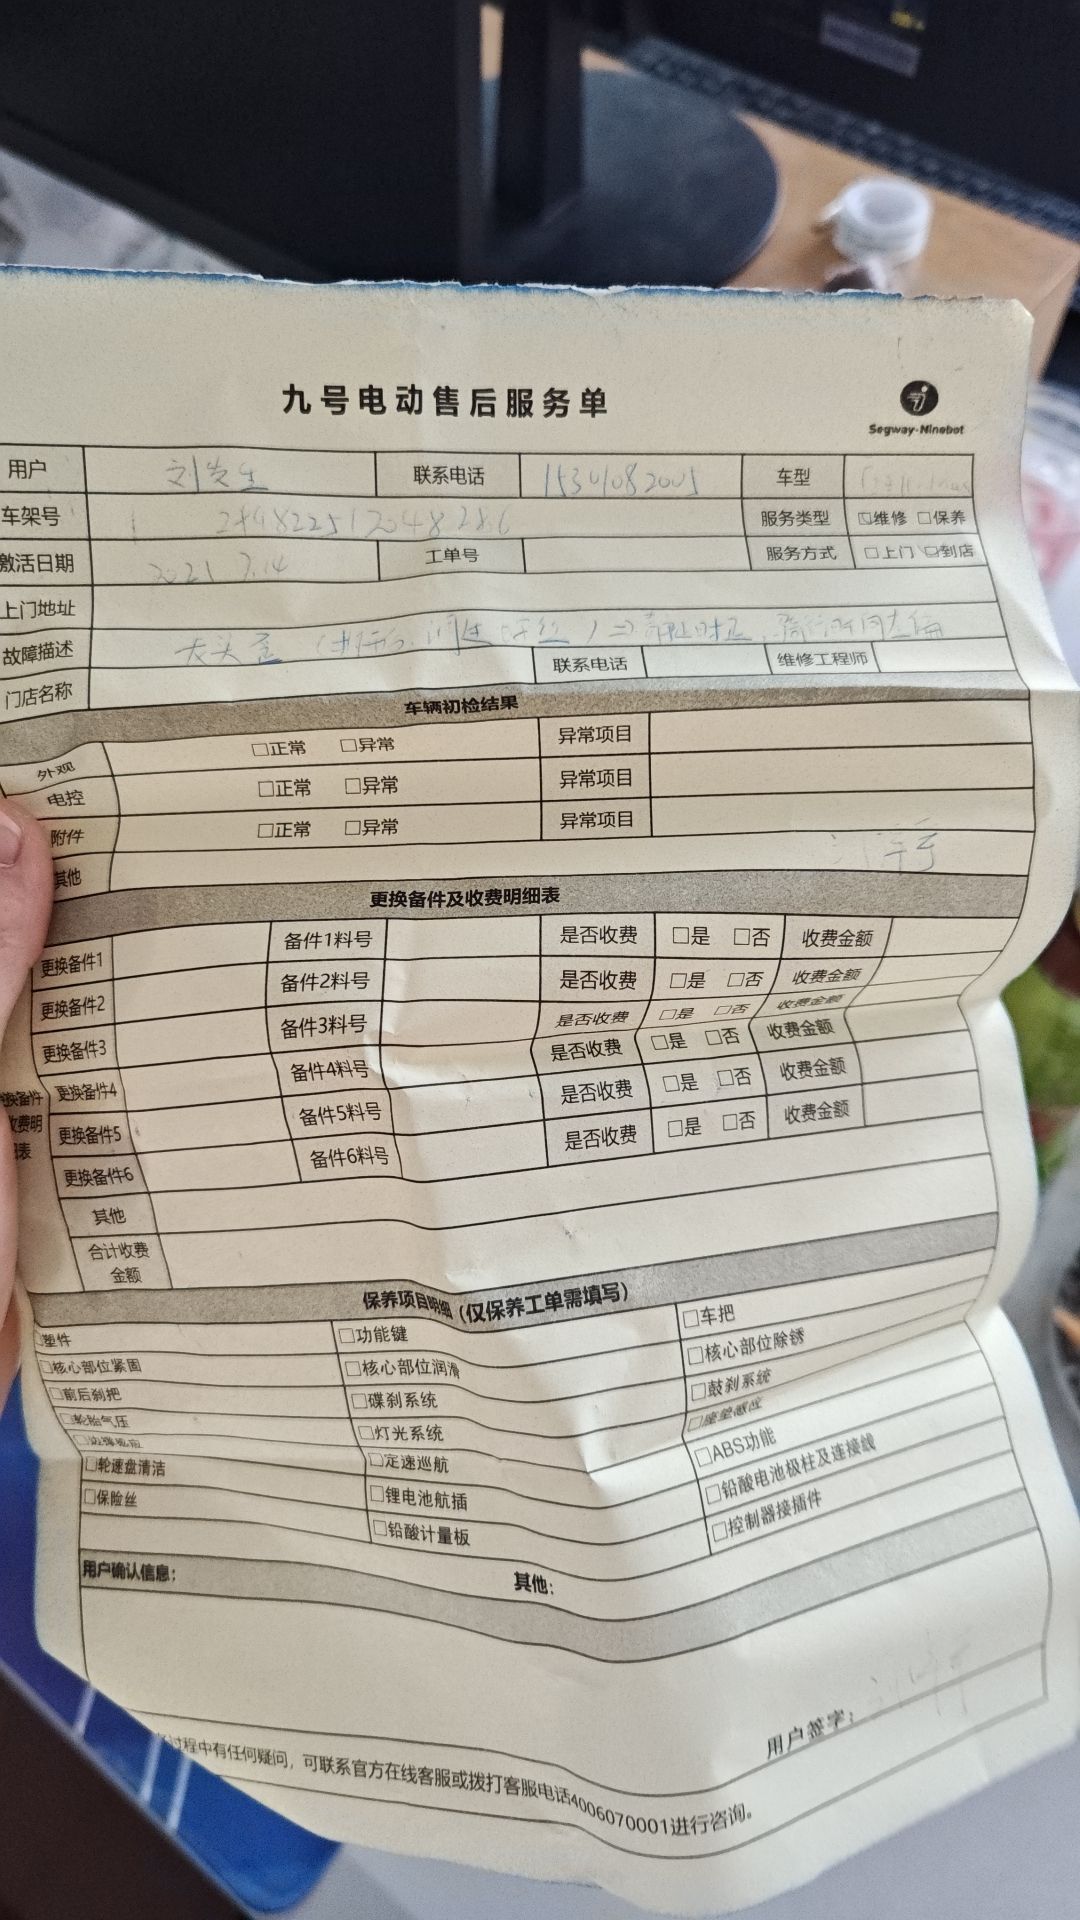 九号电动售后服务单
Segway-Ninebot
用户 刘先生 联系电话 15301082005 车型
车架号 服务类型 ☑维修 □保养
激活日期 2021 7.14 工单号 服务方式 □上门 ☑到店
上门地址
故障描述 大头歪
门店名称 联系电话 维修工程师
车辆初检结果
外观 □正常 □异常 异常项目
电控 □正常 □异常 异常项目
附件 □正常 □异常 异常项目
其他
更换备件及收费明细表
更换备件1 备件1料号 是否收费 □是 □否 收费金额
更换备件2 备件2料号 是否收费 □是 □否 收费金额
更换备件3 备件3料号 是否收费 □是 □否 收费金额
更换备件4 备件4料号 是否收费 □是 □否 收费金额
更换备件5 备件5料号 是否收费 □是 □否 收费金额
更换备件6 备件6料号 是否收费 □是 □否 收费金额
其他
合计收费
金额
保养项目明细（仅保养工单需填写）
□塑件 □功能键 □车把
□核心部位紧固 □核心部位润滑 □核心部位除锈
□前后刹把 □碟刹系统 □鼓刹系统
□轮胎气压 □灯光系统 □座垫感应
□定速巡航 □ABS功能
□轮速盘清洁 □锂电池航插 □铅酸电池极柱及连接线
□保险丝 □铅酸计量板 □控制器接插件
用户确认信息： 其他：
用户签字：
过程中有任何疑问，可联系官方在线客服或拨打客服电话4006070001进行咨询。